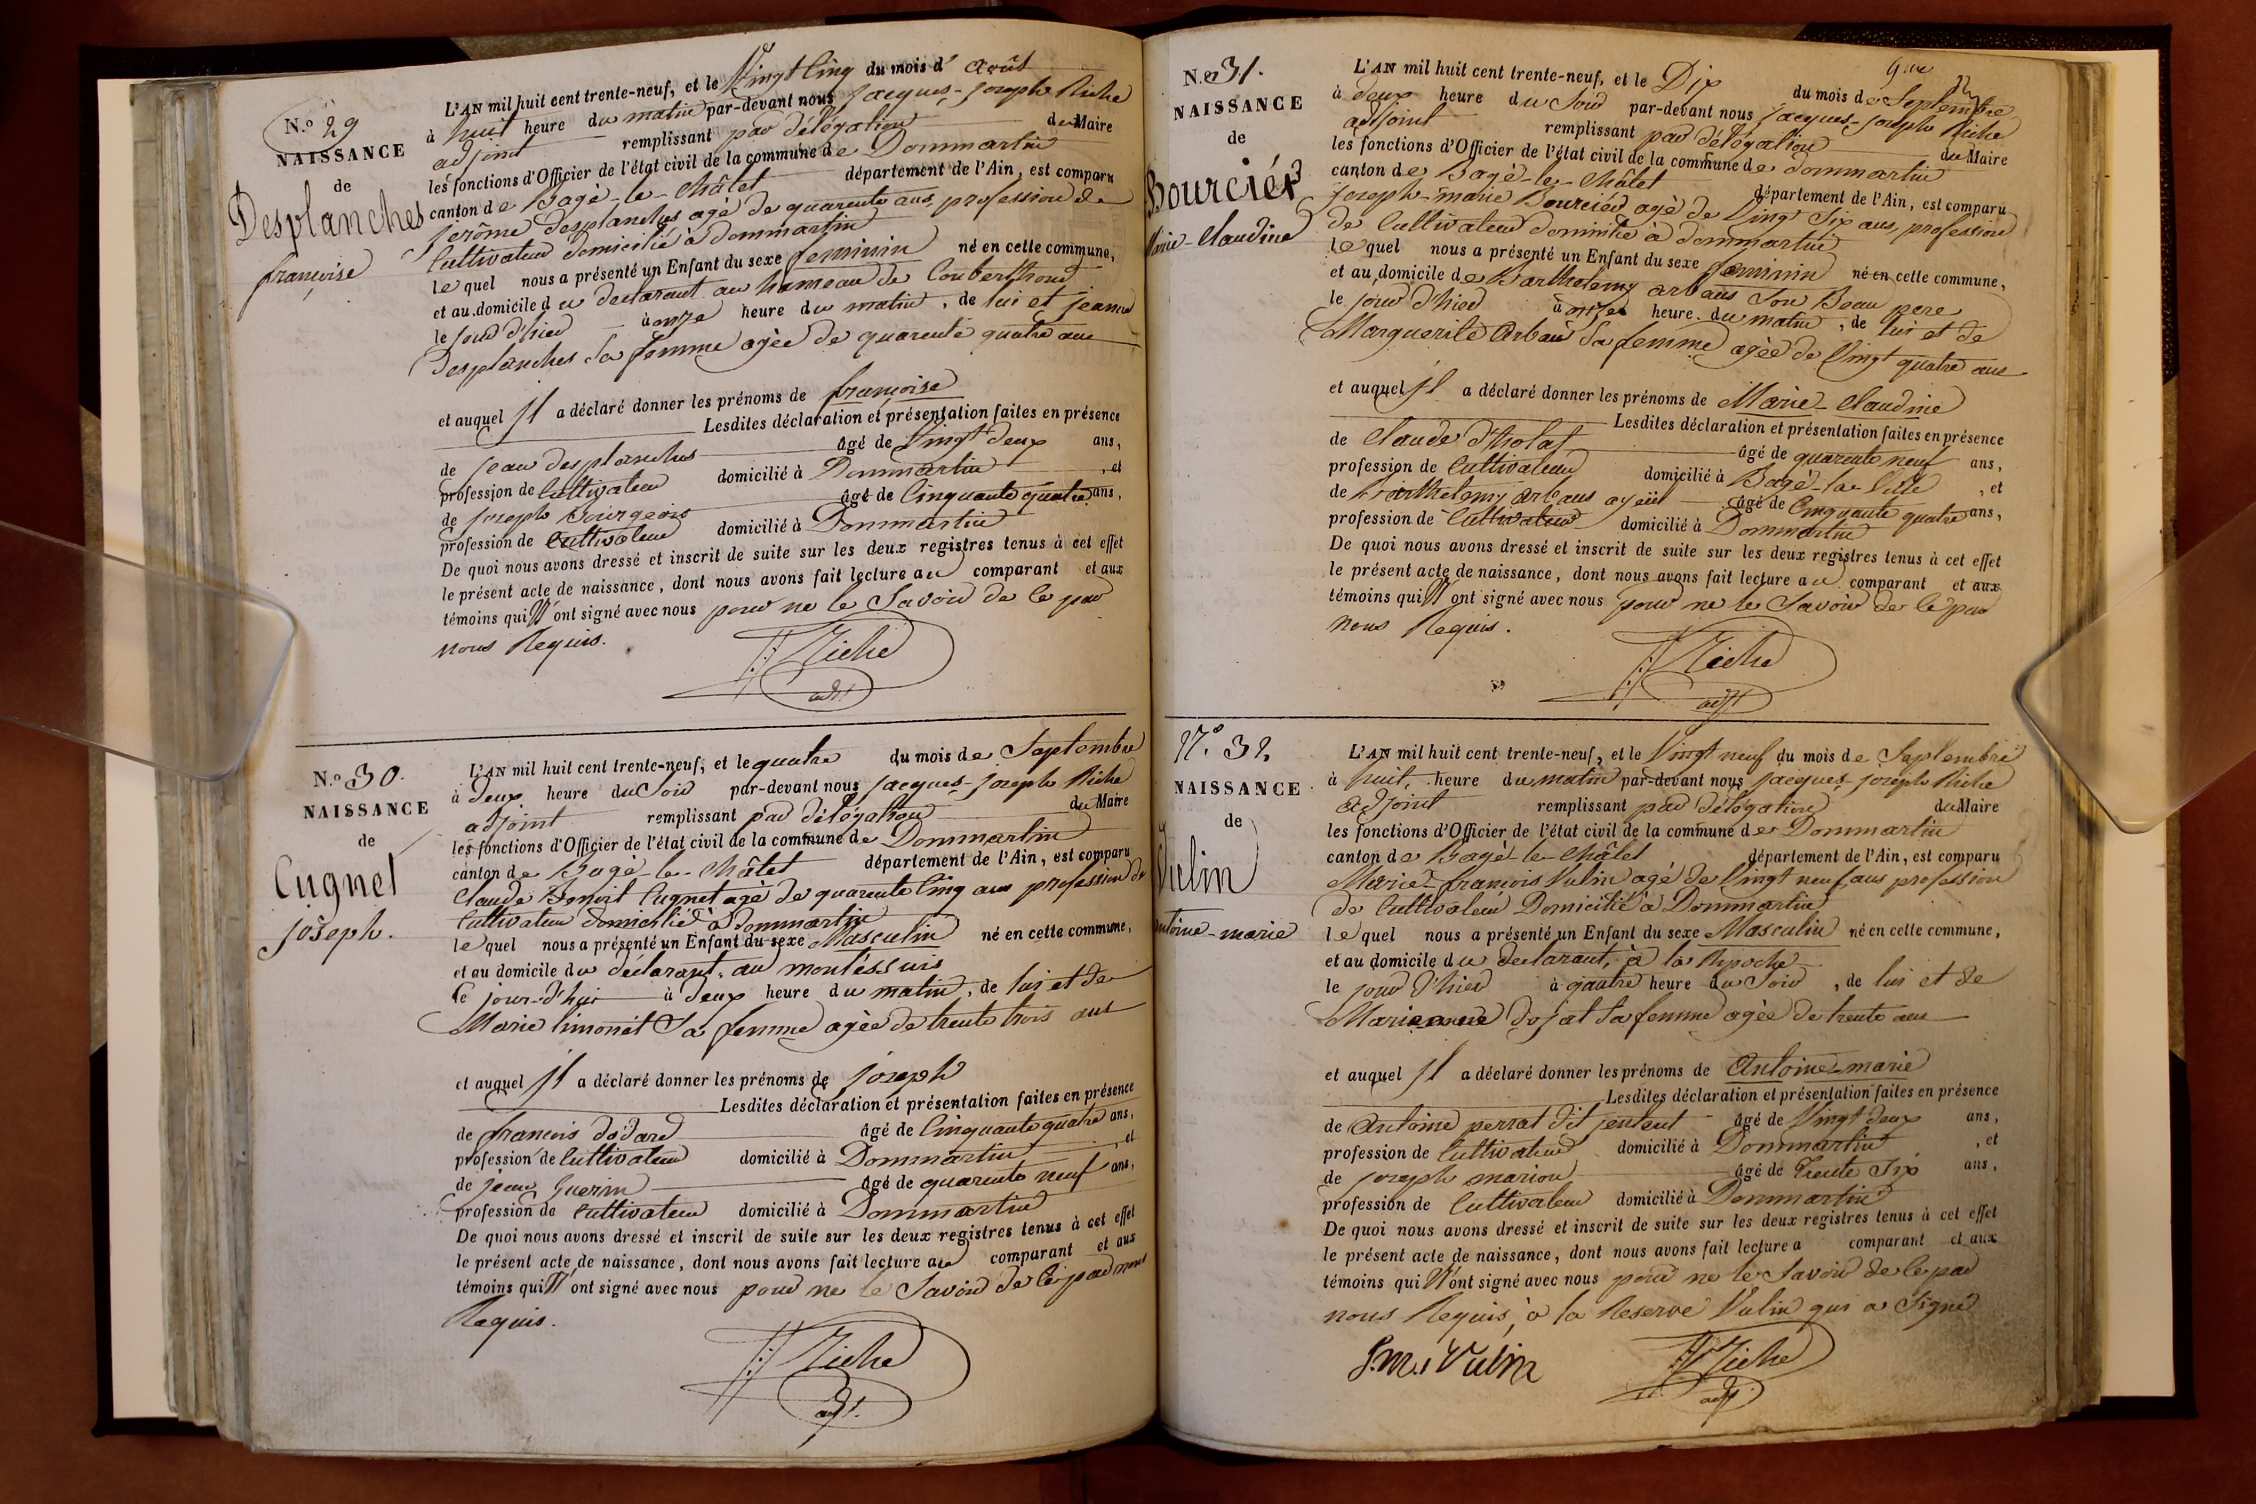 N.o 29
NAISSANCE
de
Desplanches
françoise
L'AN mil huit cent trente-neuf, et le Vingt Cinq du mois d' Août
à huit heure du matin par-devant nous jacques-joseph Riche
adjoint remplissant par délégation du Maire
les fonctions d'Officier de l'état civil de la commune de Dommartin
canton de Bagé-le-Châtel département de l'Ain, est comparu
jerôme Desplanches agé de quarante ans, profession de
Cultivateur domicilié à dommartin
le quel nous a présenté un Enfant du sexe feminin né en cette commune,
et au domicile du declarant au hameau de
le jour d'hier à onze heure du matin, de lui et jeanne
Desplanches Sa femme agée de quarente quatre ans
et auquel jl a déclaré donner les prénoms de françoise
Lesdites déclaration et présentation faites en présence
de jean desplanches âgé de Vingt deux ans,
profession de Cultivateur domicilié à Dommartin, et
de joseph Bourgeois âgé de Cinquante quatre ans,
profession de Cultivateur domicilié à Dommartin
De quoi nous avons dressé et inscrit de suite sur les deux registres tenus à cet effet
le présent acte de naissance, dont nous avons fait lecture au comparant et aux
témoins qui N'ont signé avec nous pour ne le Savoir de Ce par
nous Requis.
Riche
adjt
N.o 30.
NAISSANCE
de
Cugnet
joseph.
L'AN mil huit cent trente-neuf, et le quatre du mois de Septembre
à deux heure du Soir par-devant nous jacques-joseph Riche
adjoint remplissant par délégation du Maire
les fonctions d'Officier de l'état civil de la commune de Dommartin
canton de Bagé-le-Châtel département de l'Ain, est comparu
Claude Benoit Cugnet agé de quarente Cinq ans profession de
Cultivateur domicilié à dommartin
le quel nous a présenté un Enfant du sexe Masculin né en cette commune,
et au domicile du déclarant, au montessuis
le jour-d'hui à deux heure du matin, de lui et de
Marie limonet Sa femme agée de trente trois ans
et auquel jl a déclaré donner les prénoms de joseph
Lesdites déclaration et présentation faites en présence
de françois dodard âgé de Cinquante quatre ans,
profession de Cultivateur domicilié à Dommartin, et
de jean Guerin âgé de quarente neuf ans,
profession de Cultivateur domicilié à Dommartin
De quoi nous avons dressé et inscrit de suite sur les deux registres tenus à cet effet
le présent acte de naissance, dont nous avons fait lecture au comparant et aux
témoins qui N'ont signé avec nous pour ne le Savoir de Ce par nous
Requis.
Riche
adjt.
N.o 31.
NAISSANCE
de
Bourcier
Marie-Claudine
L'AN mil huit cent trente-neuf, et le Dix du mois de Septembre
à deux heure du Soir par-devant nous jacques-joseph Riche
adjoint remplissant par délégation du Maire
les fonctions d'Officier de l'état civil de la commune de dommartin
canton de Bagé-le-Châtel département de l'Ain, est comparu
joseph-marie Bourcier agé de Vingt Six ans, profession
de Cultivateur domicilié à dommartin
le quel nous a présenté un Enfant du sexe feminin né en cette commune,
et au domicile de Barthelemy arbans Son Beau pere
le jour d'hier à onze heure du matin, de lui et de
Marguerite Arbans Sa femme agée de Vingt quatre ans
et auquel jl a déclaré donner les prénoms de Marie-Claudine
Lesdites déclaration et présentation faites en présence
de Claude âgé de quarente neuf ans,
profession de Cultivateur domicilié à Bagé-la-Ville, et
de Barthelemy Arbans ayeül âgé de Cinquante quatre ans,
profession de Cultivateur domicilié à Dommartin
De quoi nous avons dressé et inscrit de suite sur les deux registres tenus à cet effet
le présent acte de naissance, dont nous avons fait lecture au comparant et aux
témoins qui N'ont signé avec nous pour ne le Savoir de Ce par
nous Requis.
Riche
adjt
N.o 32
NAISSANCE
de
Vulin
antoine-marie
L'AN mil huit cent trente-neuf, et le Vingt neuf du mois de Septembre
à huit heure du matin par-devant nous jacques-joseph Riche
adjoint remplissant par délégation du Maire
les fonctions d'Officier de l'état civil de la commune de Dommartin
canton de Bagé-le-Châtel département de l'Ain, est comparu
Marie-françois Vulin agé de Vingt neuf ans profession
de Cultivateur Domicilié à Dommartin
le quel nous a présenté un Enfant du sexe Masculin né en cette commune,
et au domicile du declarant, à la
le jour d'hier à quatre heure du Soir, de lui et de
dojat Sa femme agée de trente ans
et auquel jl a déclaré donner les prénoms de Antoine-marie
Lesdites déclaration et présentation faites en présence
de Antoine perrat dit âgé de Vingt deux ans,
profession de Cultivateur domicilié à Dommartin, et
de joseph marion âgé de Trente Six ans,
profession de Cultivateur domicilié à Dommartin
De quoi nous avons dressé et inscrit de suite sur les deux registres tenus à cet effet
le présent acte de naissance, dont nous avons fait lecture a comparant et aux
témoins qui N'ont signé avec nous pour ne le Savoir de Ce par
nous Requis, à la Reserve Vulin qui a Signé
Vulin
Riche
adjt